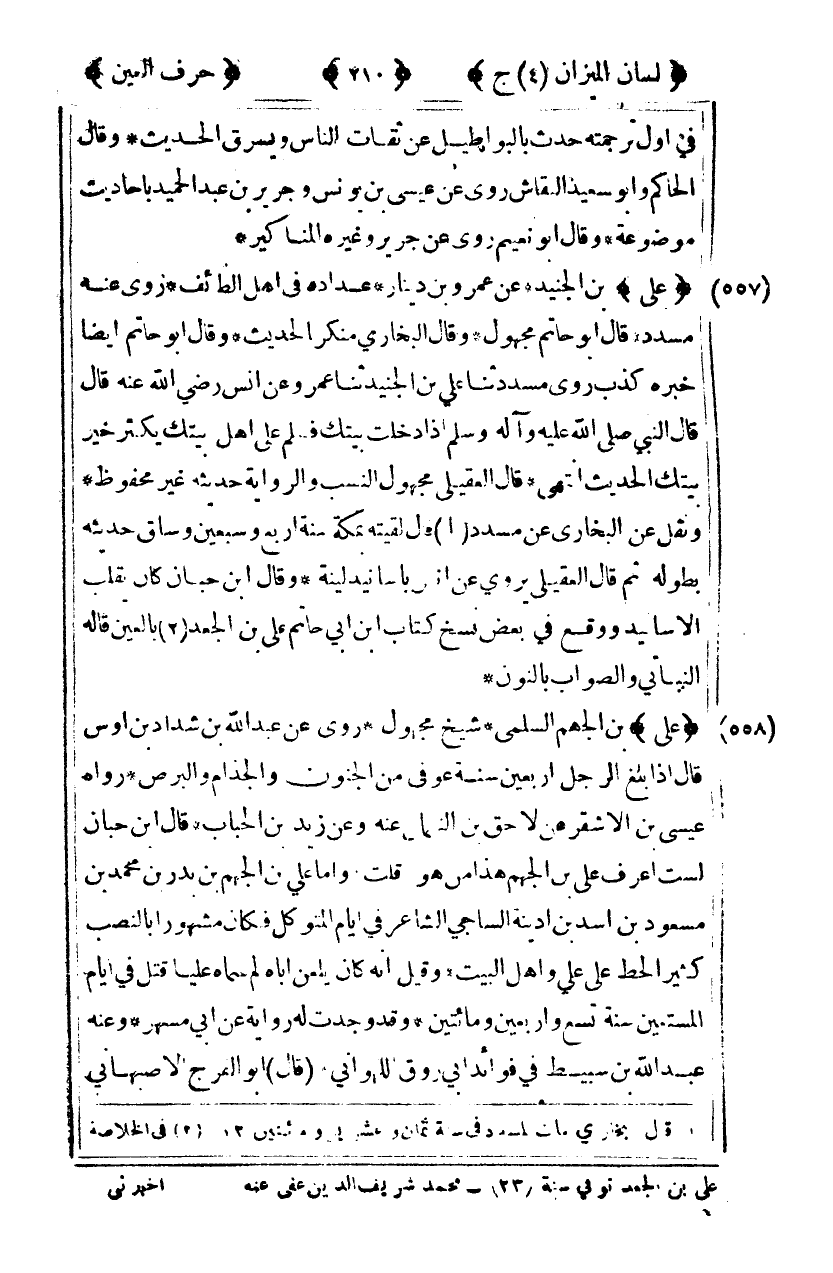 ﴿ لسان الميزان (٤) ج ﴾ ﴿ ٢١٠ ﴾ ﴿ حرف العين ﴾
في اول ترجمته حدث بالبواطيل عن ثقات الناس ويسرق الحديث * وقال
الحاكم وابو سعيد النقاش روى عن عيسى بن يونس وجرير بن عبد الحميد باحاديث
موضوعة * وقال ابو نعيم روى عن جرير وغيره المناكير *
(٥٥٧) ﴿ على ﴾ بن الجنيد * عن عمرو بن دينار * عداده في اهل الطائف * روى عنه
مسدد * قال ابو حاتم مجهول * وقال البخاري منكر الحديث * وقال ابو حاتم ايضا
خبره كذب روى مسدد ثنا علي بن الجنيد ثنا عمرو عن انس رضي الله عنه قال
قال النبي صلى الله عليه وآله وسلم اذا دخلت بيتك فسلم على اهل بيتك يكثر خير
بيتك الحديث انتهى * قال العقيلي مجهول النسب والرواية حديثه غير محفوظ *
ونقل عن البخارى عن مسدد (١) قال لقيته بمكة سنة اربع وسبعين وساق حديثه
بطوله ثم قال العقيلي يروي عن انس باسانيد لينة * وقال ابن حبان كان يقلب
الاسانيد ووقع في بعض نسخ كتاب ابن ابي حاتم على بن الجعد (٢) بالعين قاله
والصواب بالنون *
(٥٥٨) ﴿ على ﴾ بن الجهم السلمى * شيخ مجهول * روى عن عبد الله بن شداد بن اوس
قال اذا بلغ الرجل اربعين سنة عوفى من الجنون والجذام والبرص * رواه
عيسى بن الاشقر عن لاحق بن عنه وعن زيد بن الحباب * قال ابن حبان
لست اعرف على بن الجهم هذا من هو قلت واما علي بن الجهم بن بدر بن محمد بن
مسعود بن اسد بن اذينة الساجي الشاعر في ايام المتوكل فكان مشهورا بالنصب
كثير الحط على علي واهل البيت * وقيل انه كان يلعن اباه لم سماه عليا قتل في ايام
المستعين سنة تسع واربعين ومائتين * وقد وجدت له رواية عن ابي مسهر * وعنه
عبد الله بن سبيط في فوائد ابي روق الهزاني * (قال) ابو الفرج الاصبهاني
١ قال بخاري مات مسدد في سنة ثمان وعشرين ومئتين ١٢ (٢) في الخلاصة
على بن الجعد توفي سنة ٢٣٠ ـ محمد شريف الدين عفى عنه
اخبرنى